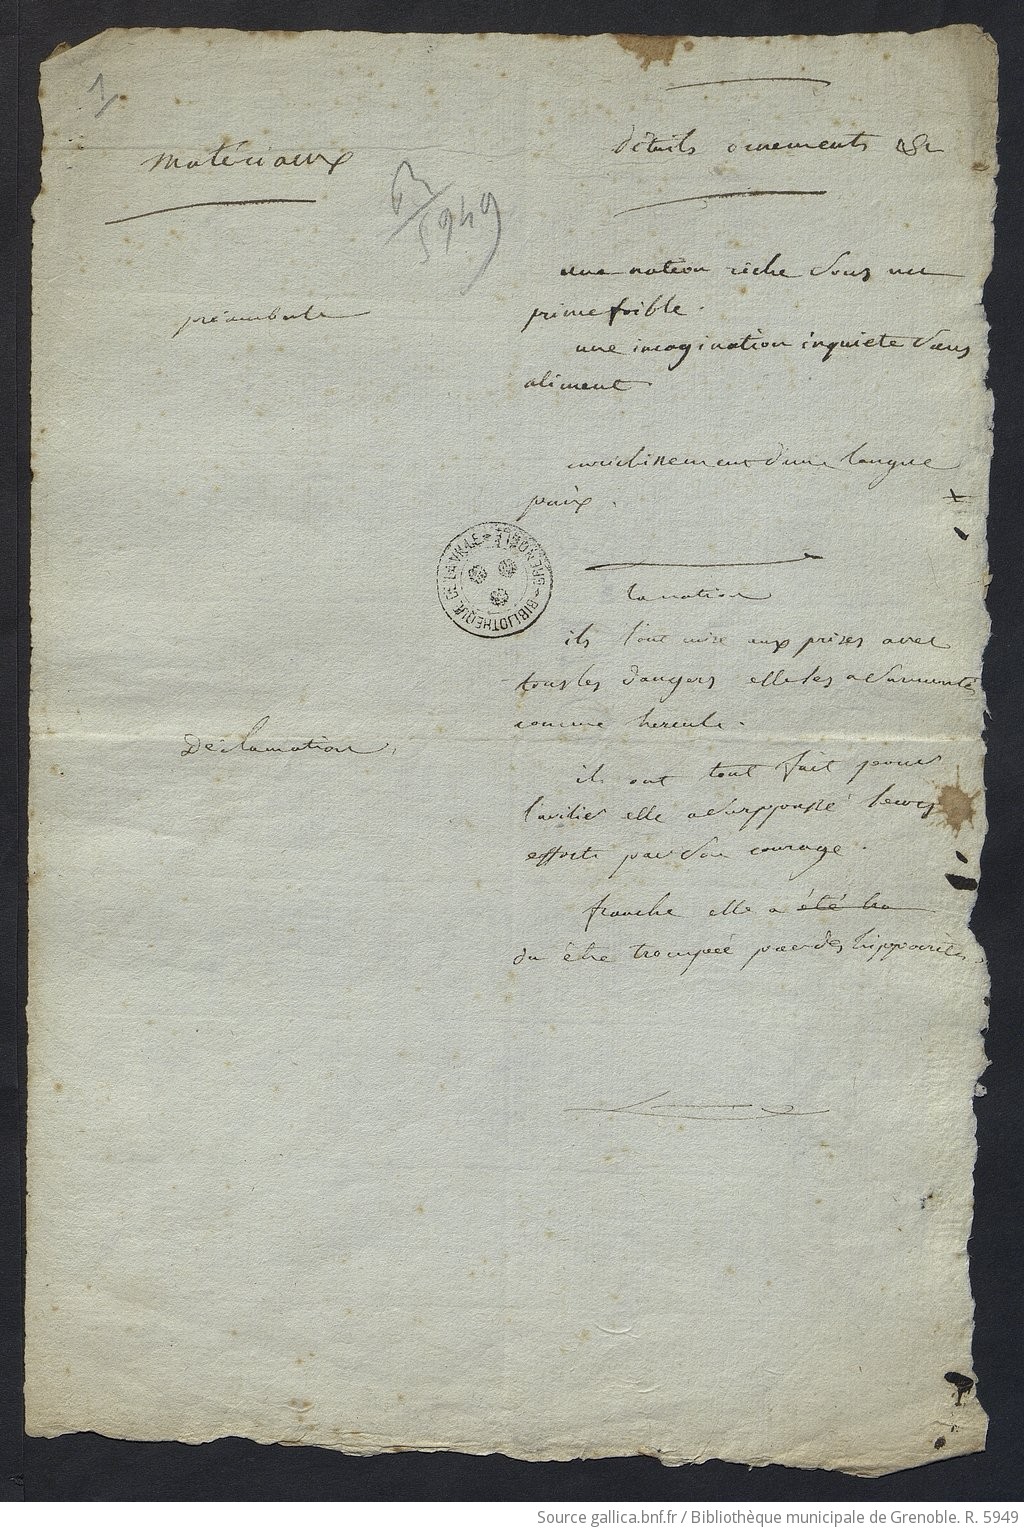 1
matériaux
détails ornements &c
R
5949
une nation riche sous un
prince foible.
une imagination inquiete sans
aliment
préambule
enrichissement d'une langue
paix.
BIBLIOTHEQUE DE LA VILLE GRENOBLE
la nation
ils l'ont mise aux prises avec
tous les dangers elle les a surmontés
comme hercule.
Déclamation,
ils ont tout fait pour
l'avilir elle a surpassé leurs
efforts par son courage.
franche elle a été tro
du être trompée par des hippocrites
Source gallica.bnf.fr / Bibliothèque municipale de Grenoble. R. 5949